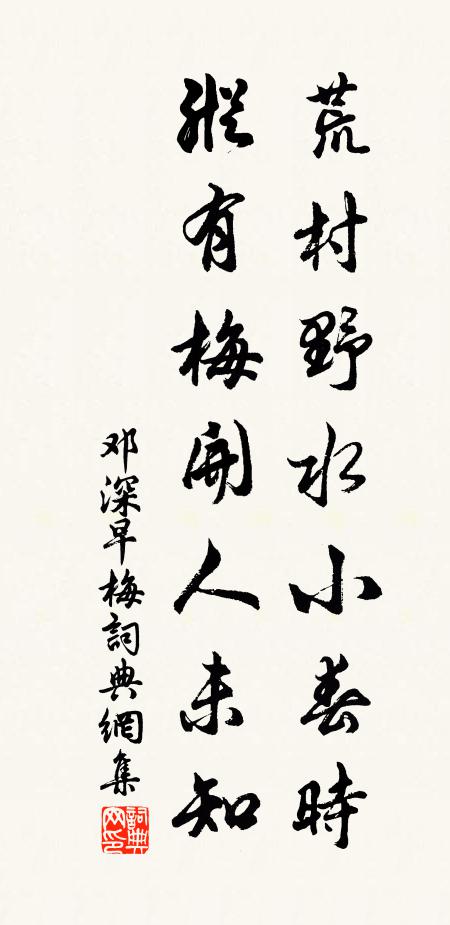 荒村野水小春時
縱有梅開人未知
邓深早梅詞典網集
詞典网印